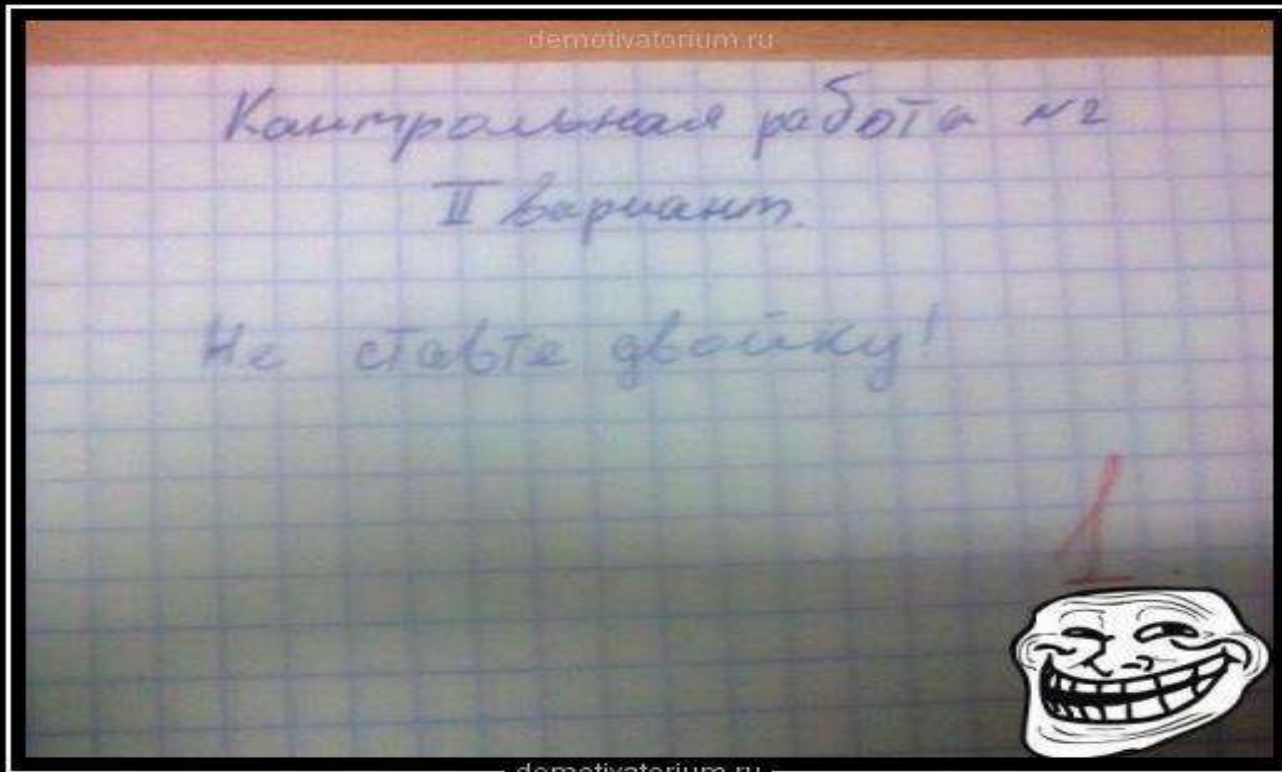 demotivatorium.ru
Кантрольная работа №2
II вариант.
Не ставте двойку!
1
demotivatorium.ru